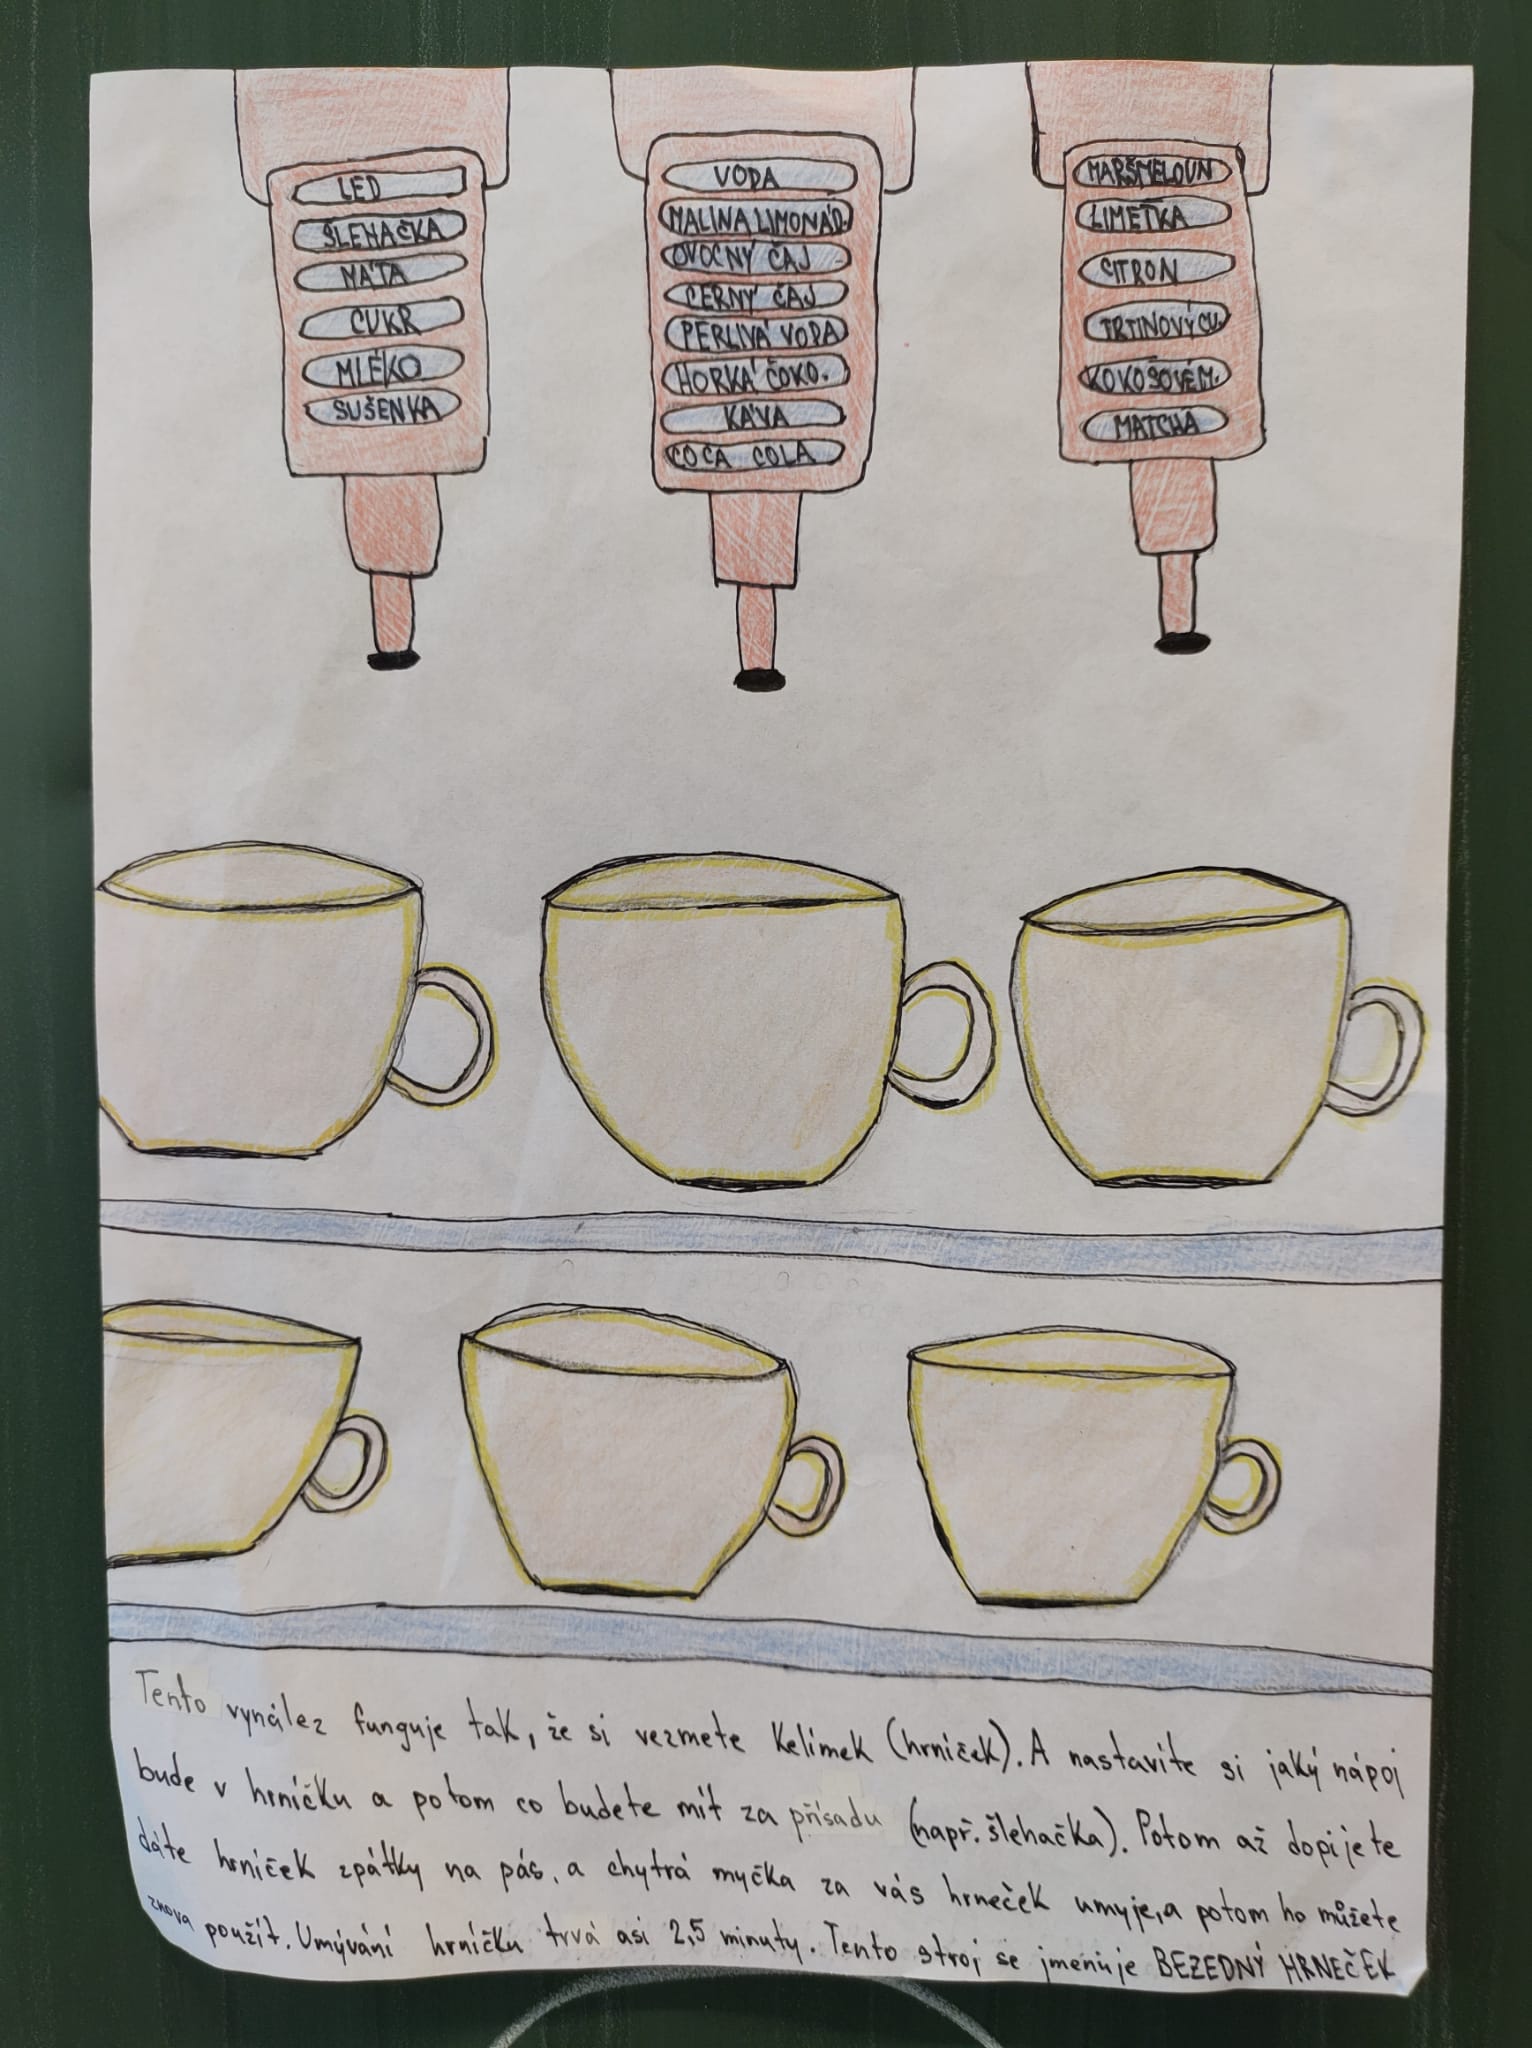 LED
ŠLEHAČKA
MÁTA
CUKR
MLÉKO
SUŠENKA
VODA
MALINA LIMONÁD.
OVOCNÝ ČAJ
ČERNÝ ČAJ
PERLIVÁ VODA
HORKÁ ČOKO.
KÁVA
COCA COLA
MARŠMELOUN
LIMETKA
CITRON
TRTINOVÝ CU.
KOKOSOVÉ M.
MATCHA
Tento vynález funguje tak, že si vezmete Kelímek (hrníček). A nastavíte si jaký nápoj
bude v hrníčku a potom co budete mít za přísadu (např. šlehačka). Potom až dopijete
dáte hrníček zpátky na pás, a chytrá myčka za vás hrneček umyje, a potom ho můžete
znova použít. Umývání hrníčku trvá asi 2,5 minuty. Tento stroj se jmenuje BEZEDNÝ HRNEČEK